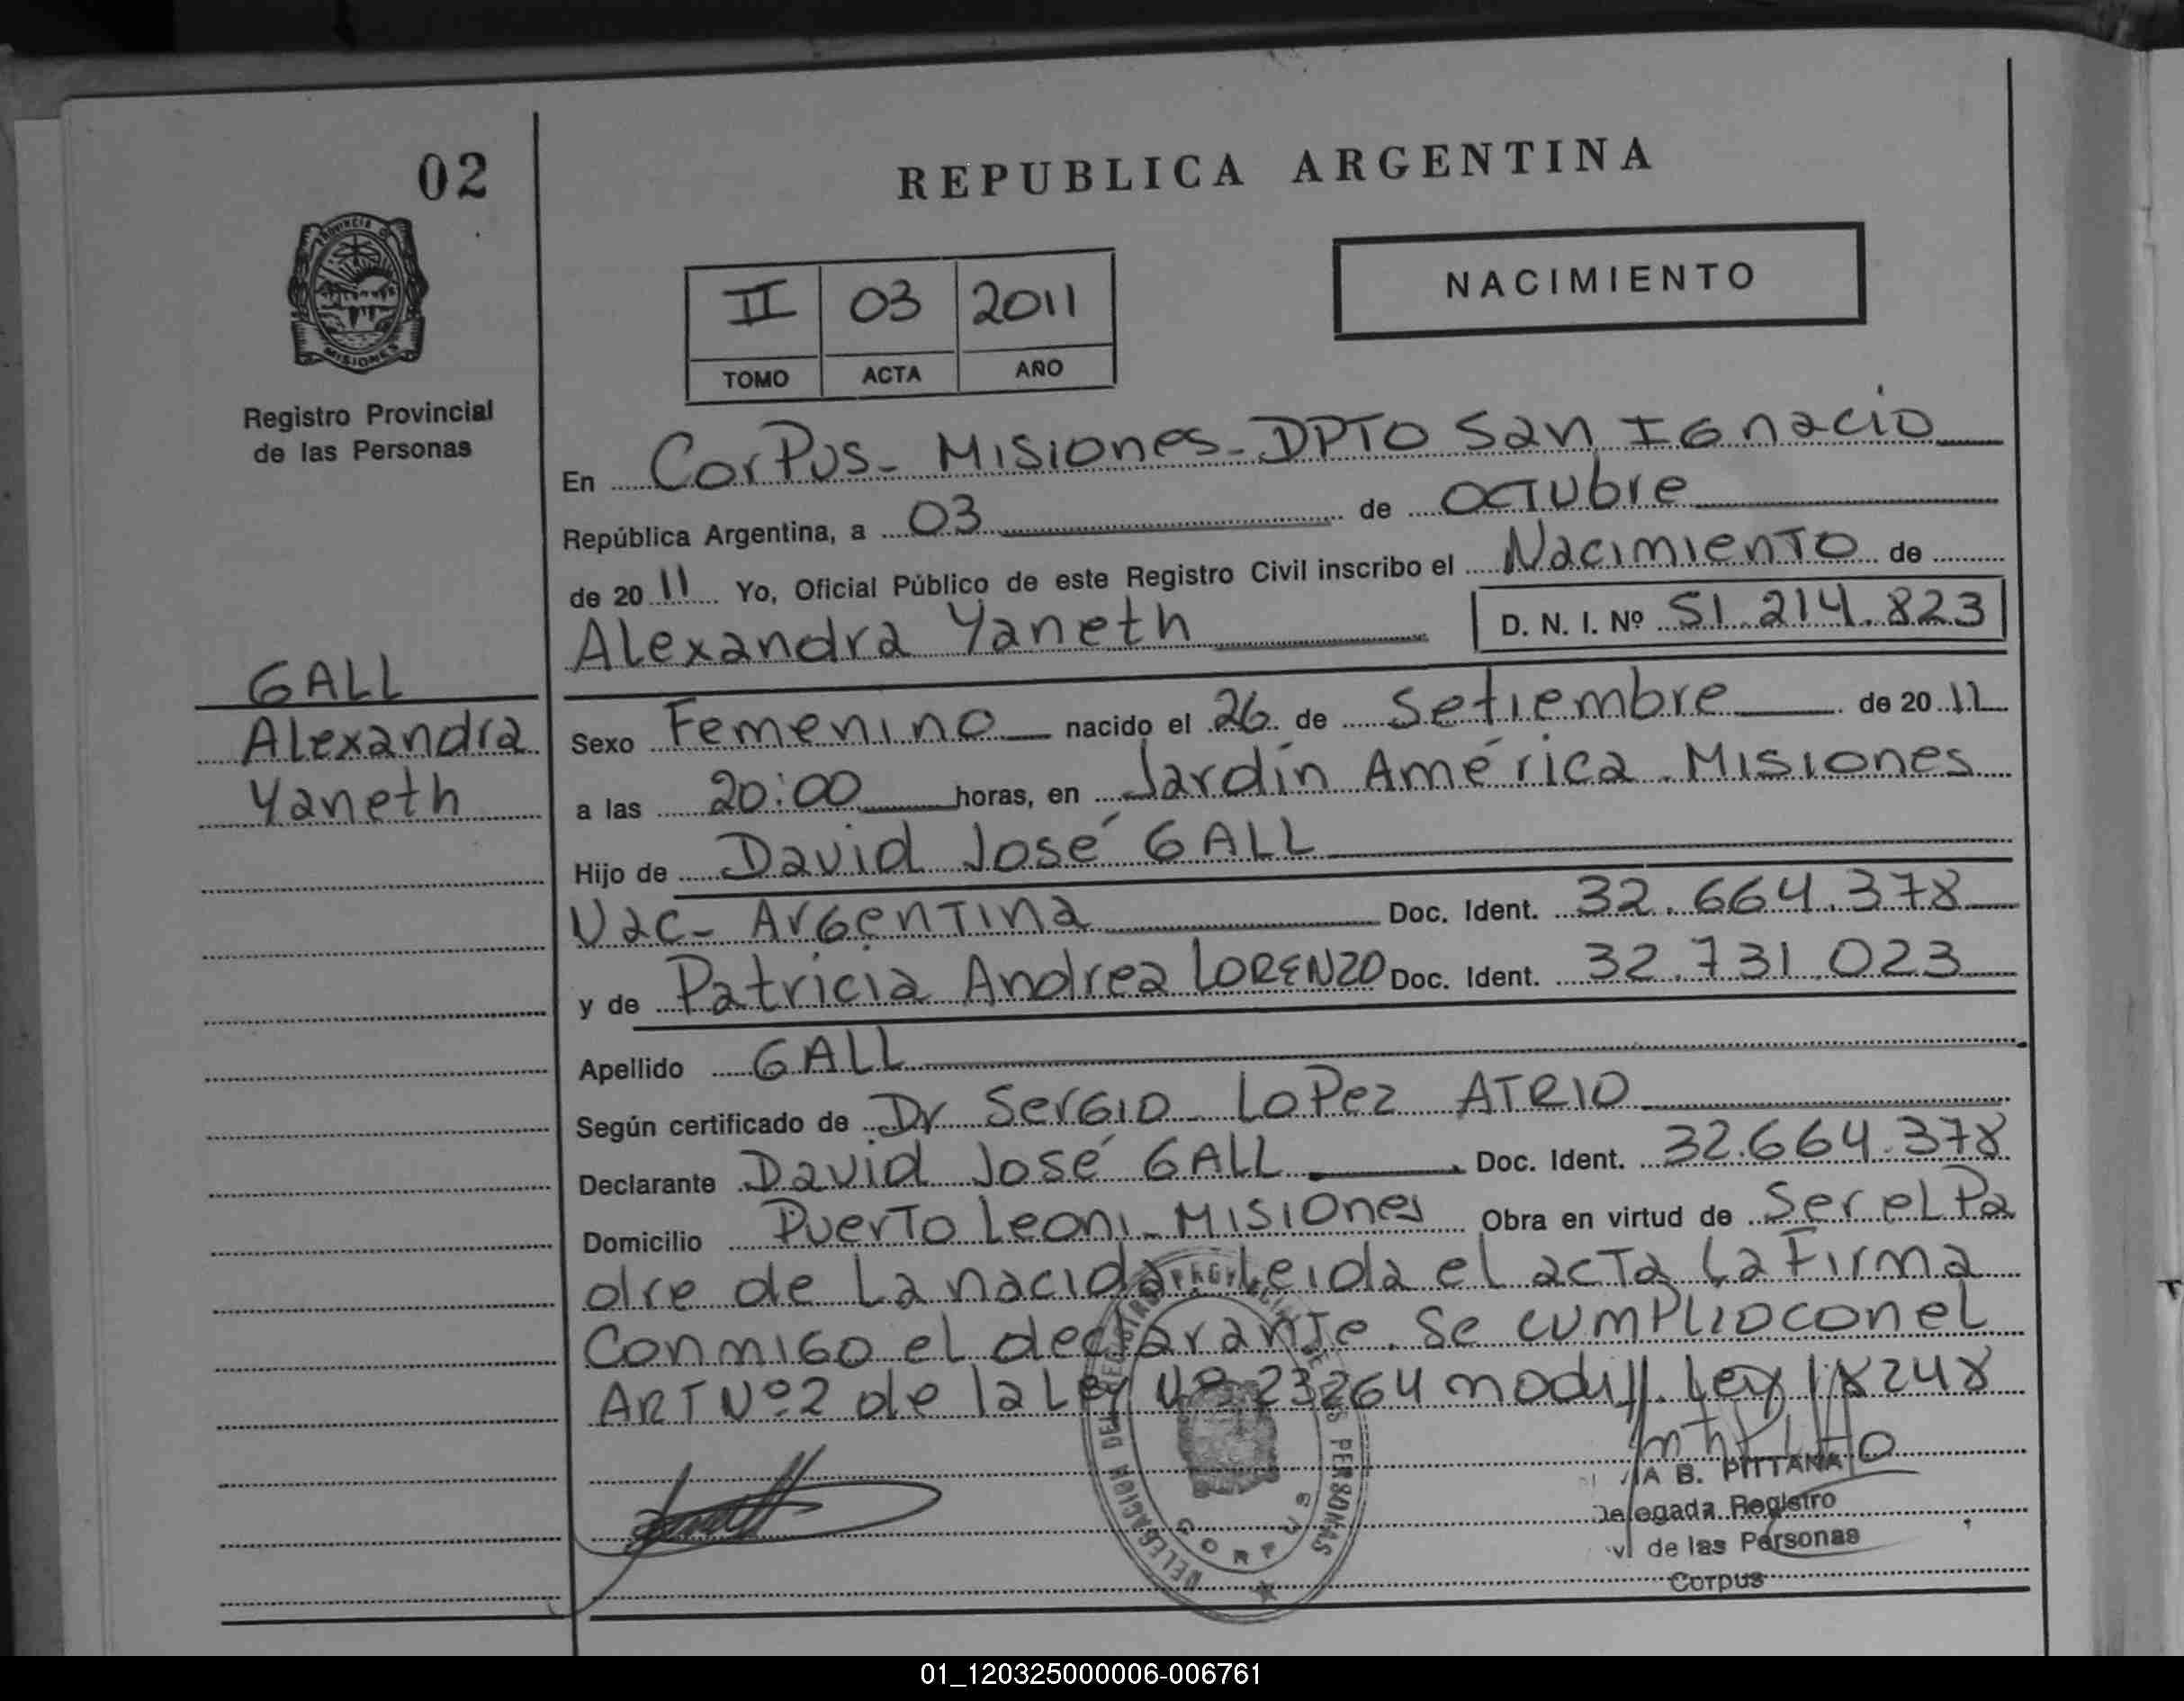 02
REPUBLICA ARGENTINA
PROVINCIA D
MISIONES
Registro Provincial
de las Personas
NACIMIENTO
II 03 2011
TOMO ACTA AÑO
En Corpus - Misiones - DPTO San Ignacio
República Argentina, a 03 de octubre
de 20 11 Yo, Oficial Público de este Registro Civil inscribo el Nacimiento de
Alexandra Yaneth D. N. I. Nº 51.214.823
GALL
Alexandra
Yaneth
Sexo Femenino nacido el 26 de Setiembre de 20 11
a las 20:00 horas, en Jardín América - Misiones
Hijo de David José GALL
Nac - Argentina Doc. Ident. 32.664.378
y de Patricia Andrea LORENZO Doc. Ident. 32.731.023
Apellido GALL
Según certificado de Dr Sergio Lopez ATRIO
Declarante David José GALL Doc. Ident. 32.664.378
Domicilio Puerto Leoni - Misiones Obra en virtud de Ser el Pa
dre de La nacida. Leida el acta La Firma
Conmigo el declarante. Se cumplio con el
ART Nº 2 de la Ley Nº 23264 modif. Ley 18248
B. PITTANA
Delegada Registro
de las Personas
Corpus
DELEGACION DEL REGISTRO PROVINCIAL DE LAS PERSONAS
CORPUS
01_120325000006-006761